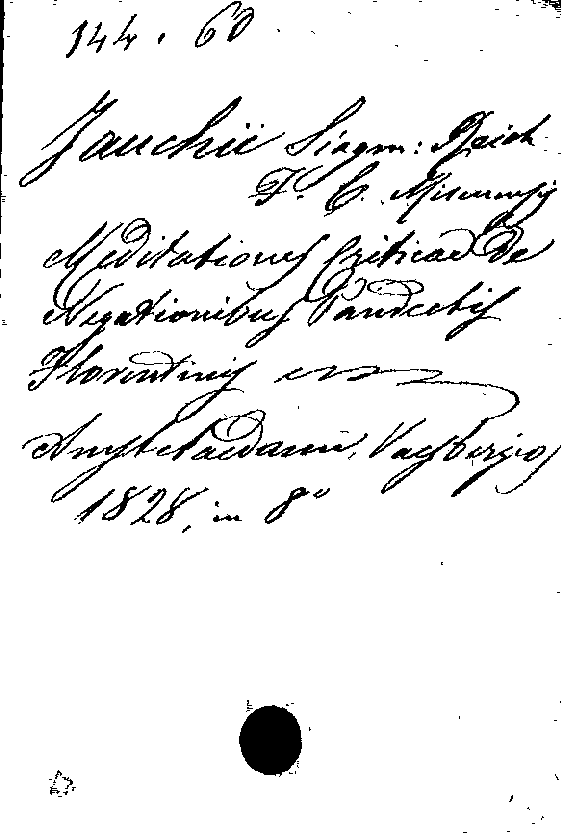 144. 60
Jauchii Siagm: Reich
F. C. Misenensis
Meditationes Criticae de
Negationibus Pandectis
Florentinis
Amstelaedami, Vaesbergios
1828, in 8°